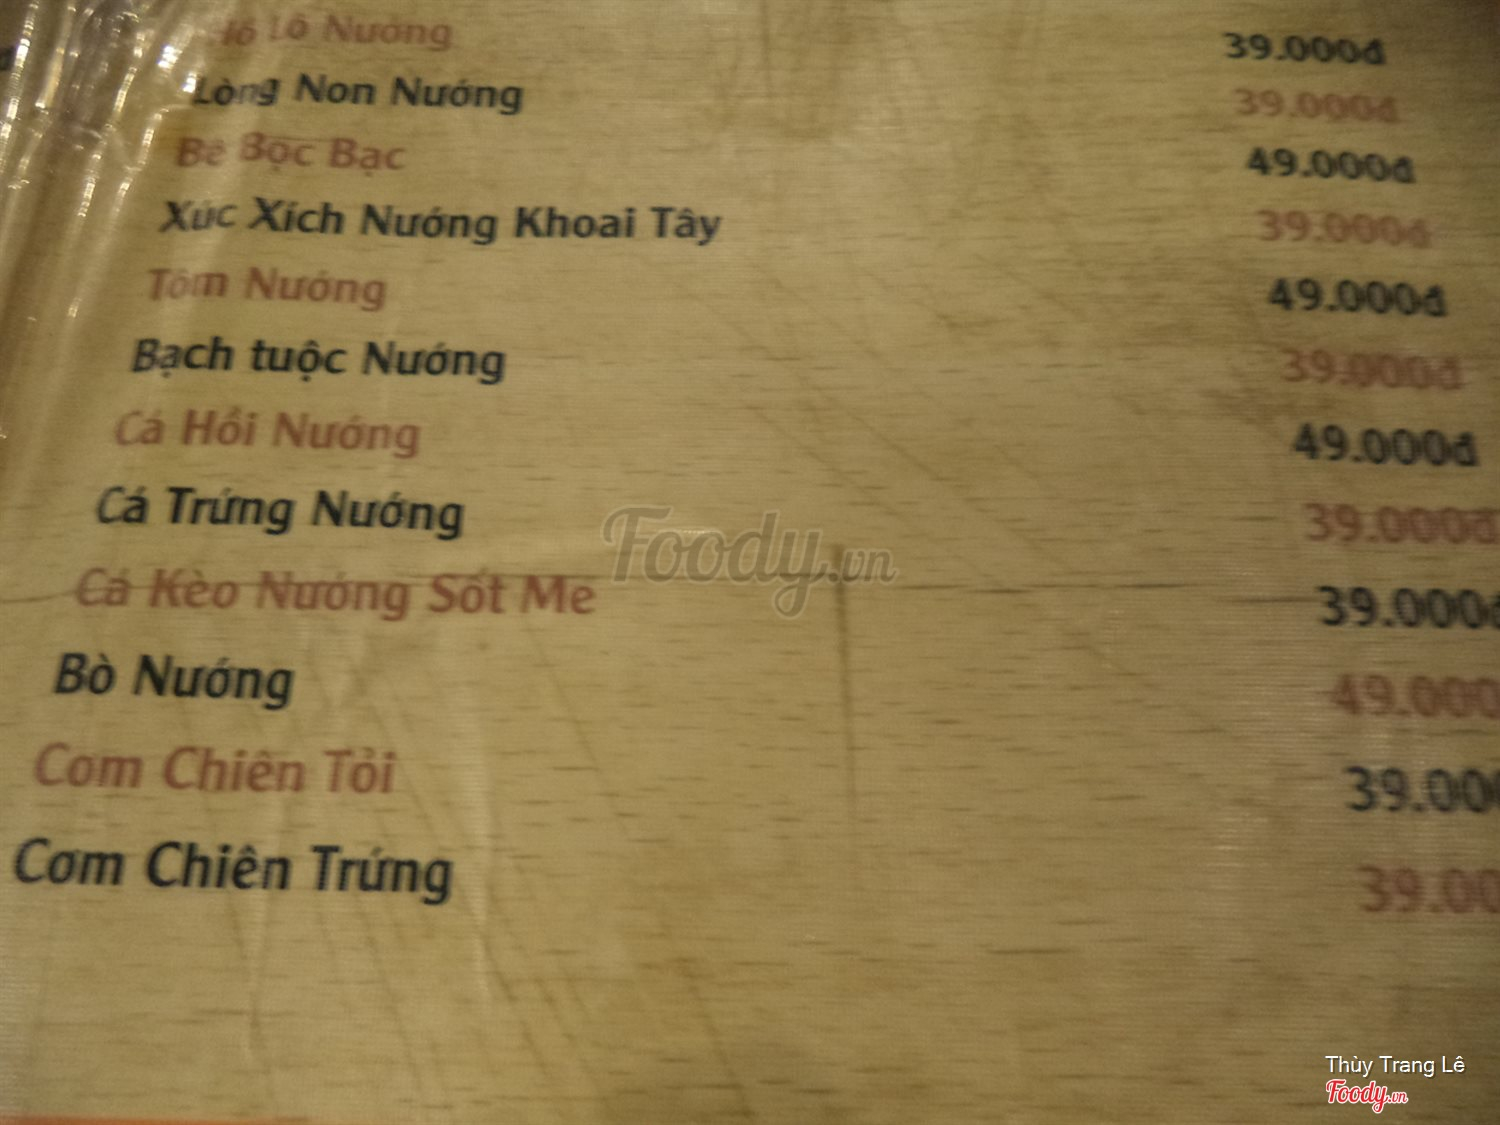 Lô Nướng 39.000đ
Lòng Non Nướng 39.000đ
Bê Bọc Bạc 49.000đ
Xúc Xích Nướng Khoai Tây 39.000đ
Tôm Nướng 49.000đ
Bạch tuộc Nướng 39.000đ
Cá Hồi Nướng 49.000đ
Cá Trứng Nướng 39.000đ
Cá Kèo Nướng Sốt Me 39.000đ
Bò Nướng 49.000
Cơm Chiên Tỏi 39.00
Cơm Chiên Trứng 39.00
Foody.vn
Thùy Trang Lê
Foody.vn